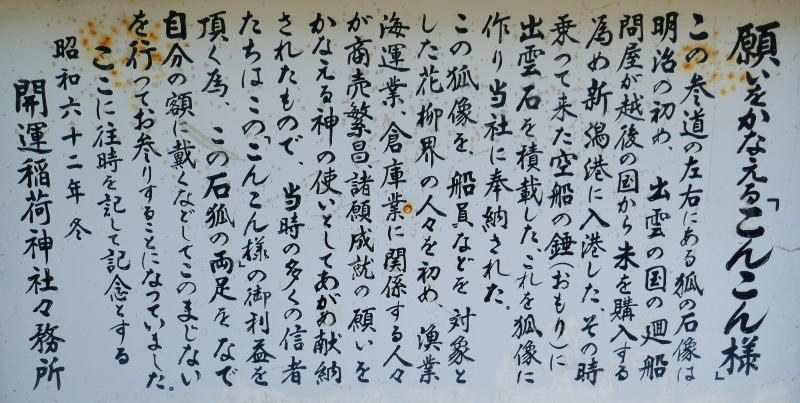 願いをかなえる「こんこん様」
この参道の左右にある狐の石像は
明治の初め、出雲の国の廻船
問屋が越後の国から米を購入する
為め新潟港に入港したその時
乗って来た空船の錘(おもり)に
出雲石を積載した、これを狐像に
作り当社に奉納された。
この狐像を、船員などを対象と
した花柳界の人々を初め、漁業
海運業、倉庫業に関係する人々
が商売繁昌諸願成就の願いを
かなえる神の使いとしてあがめ献納
されたもので、当時の多くの信者
たちはこの「こんこん様」の御利益を
頂く為、この石狐の両足をなで
自分の額に戴くなどしてこのまじない
を行ってお参りすることになっていました。
ここに往時を記して記念とする
昭和六十二年冬
開運稲荷神社々務所